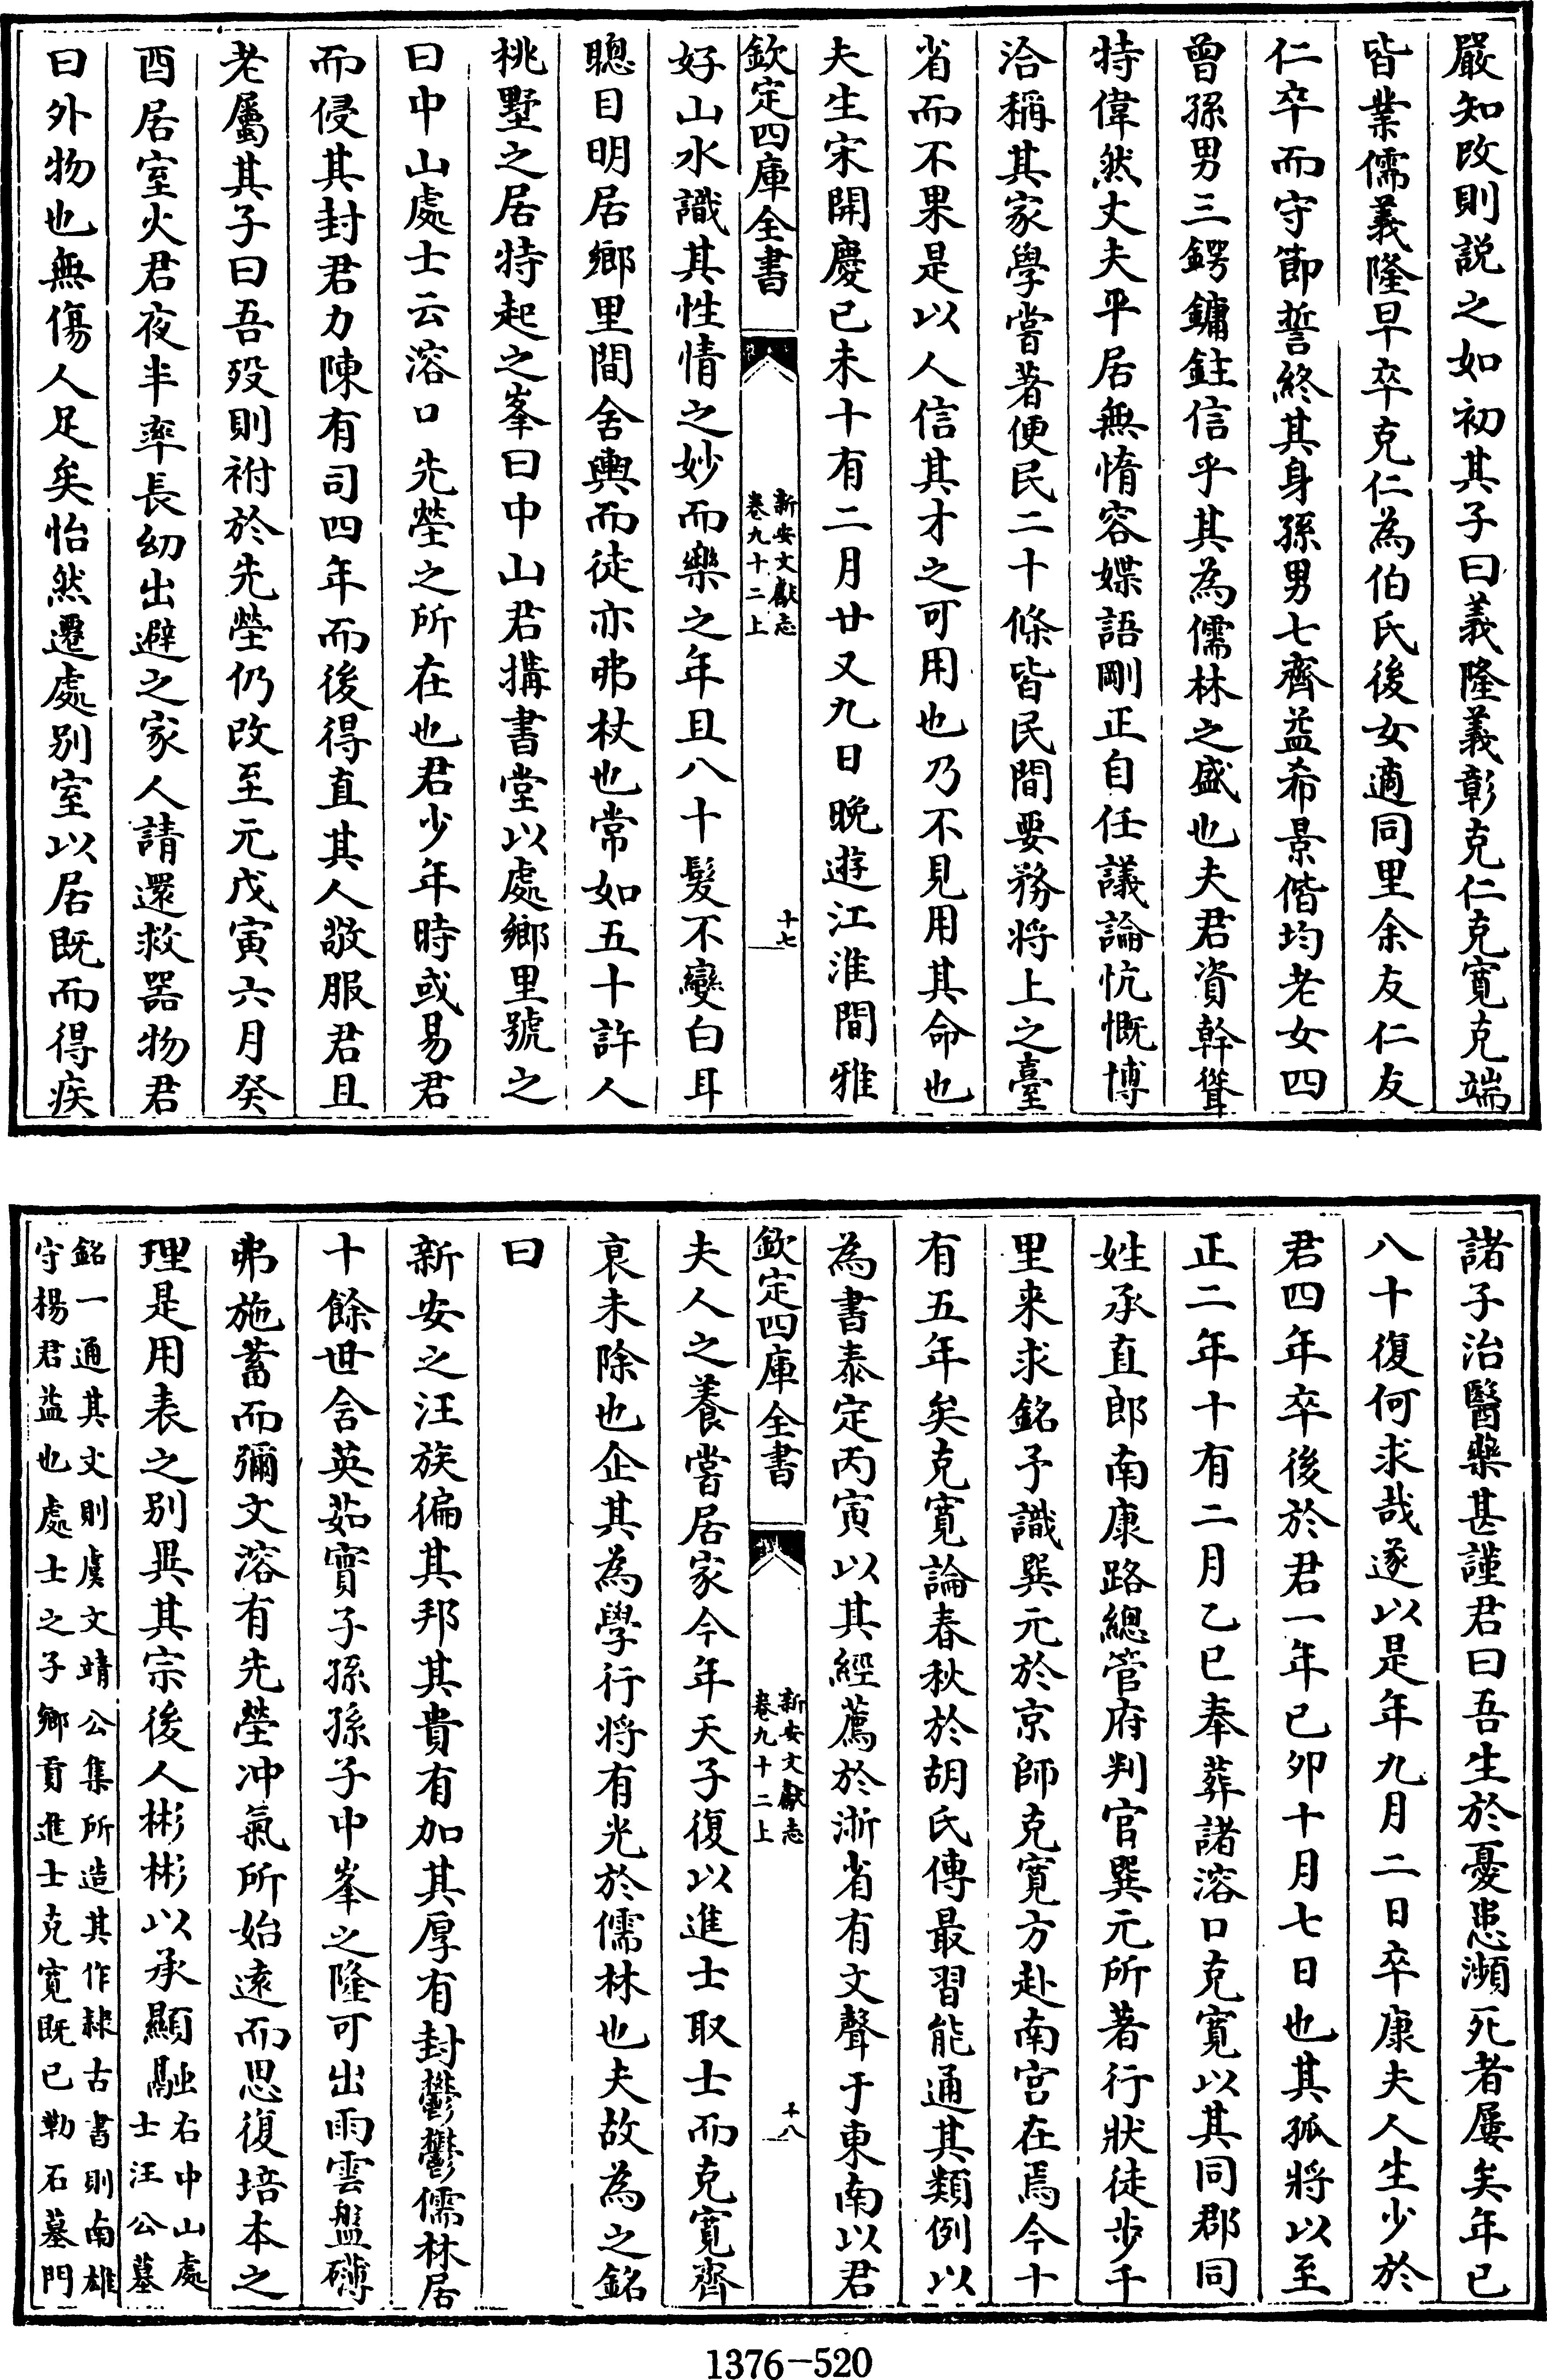 嚴知改則説之如初其子曰義隆義彰克仁克寛克端
皆業儒義隆早卒克仁為伯氏後女適同里余友仁友
仁卒而守節誓終其身孫男七齊益希景偕均老女四
曾孫男三鍔鏞鉒信乎其為儒林之盛也夫君資幹聳
特偉然丈夫平居無惰容媟語剛正自任議論忼慨博
洽稱其家學嘗著便民二十條皆民間要務將上之臺
省而不果是以人信其才之可用也乃不見用其命也
夫生宋開慶己未十有二月廿又九日晚遊江淮間雅
欽定四庫全書
新安文獻志
卷九十二上
十七
好山水識其性情之妙而樂之年且八十髮不變白耳
聰目明居鄉里間舍輿而徒亦弗杖也常如五十許人
桃墅之居特起之峯曰中山君搆書堂以處鄉里號之
曰中山處士云溶口先塋之所在也君少年時或易君
而侵其封君力陳有司四年而後得直其人敬服君且
老屬其子曰吾歿則祔於先塋仍改至元戊寅六月癸
酉居室火君夜半率長幼出避之家人請還救器物君
曰外物也無傷人足矣怡然遷處别室以居既而得疾
諸子治醫藥甚謹君曰吾生於憂患瀕死者屢矣年已
八十復何求哉遂以是年九月二日卒康夫人生少於
君四年卒後於君一年己卯十月七日也其孤將以至
正二年十有二月乙巳奉葬諸溶口克寛以其同郡同
姓承直郎南康路總管府判官巽元所著行狀徒步千
里来求銘予識巽元於京師克寛方赴南宫在焉今十
有五年矣克寛論春秋於胡氏傳最習能通其類例以
為書泰定丙寅以其經薦於浙省有文聲于東南以君
欽定四庫全書
新安文獻志
卷九十二上
十八
夫人之養嘗居家今年天子復以進士取士而克寛齊
哀未除也企其為學行將有光於儒林也夫故為之銘
曰
新安之汪族徧其邦其貴有加其厚有封鬱鬱儒林居
十餘世含英茹實子孫孫子中峯之隆可出雨雲盤礴
弗施蓄而彌文溶有先塋冲氣所始遠而思復培本之
理是用表之别異其宗後人彬彬以承顯融
右中山處
士汪公墓
銘一通其文則虞文靖公集所造其作隸古書則南雄
守楊君益也處士之子鄉貢進士克寛既已勒石墓門
1376-520